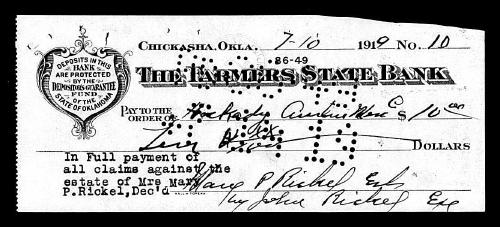 DEPOSITS IN THIS
BANK
ARE PROTECTED
BY THE
DEPOSITORS GUARANTEE
FUND
OF THE
STATE OF OKLAHOMA
CHICKASHA, OKLA. 7-10 1919 No. 10
86-49
THE FARMERS STATE BANK
PAY TO THE
ORDER OF $ 10 00
Ten DOLLARS
In Full payment of
all claims against the
estate of Mrs Mary
P.Rickel,Dec'd
Mary P Rickel Est
By John Rickel Exe